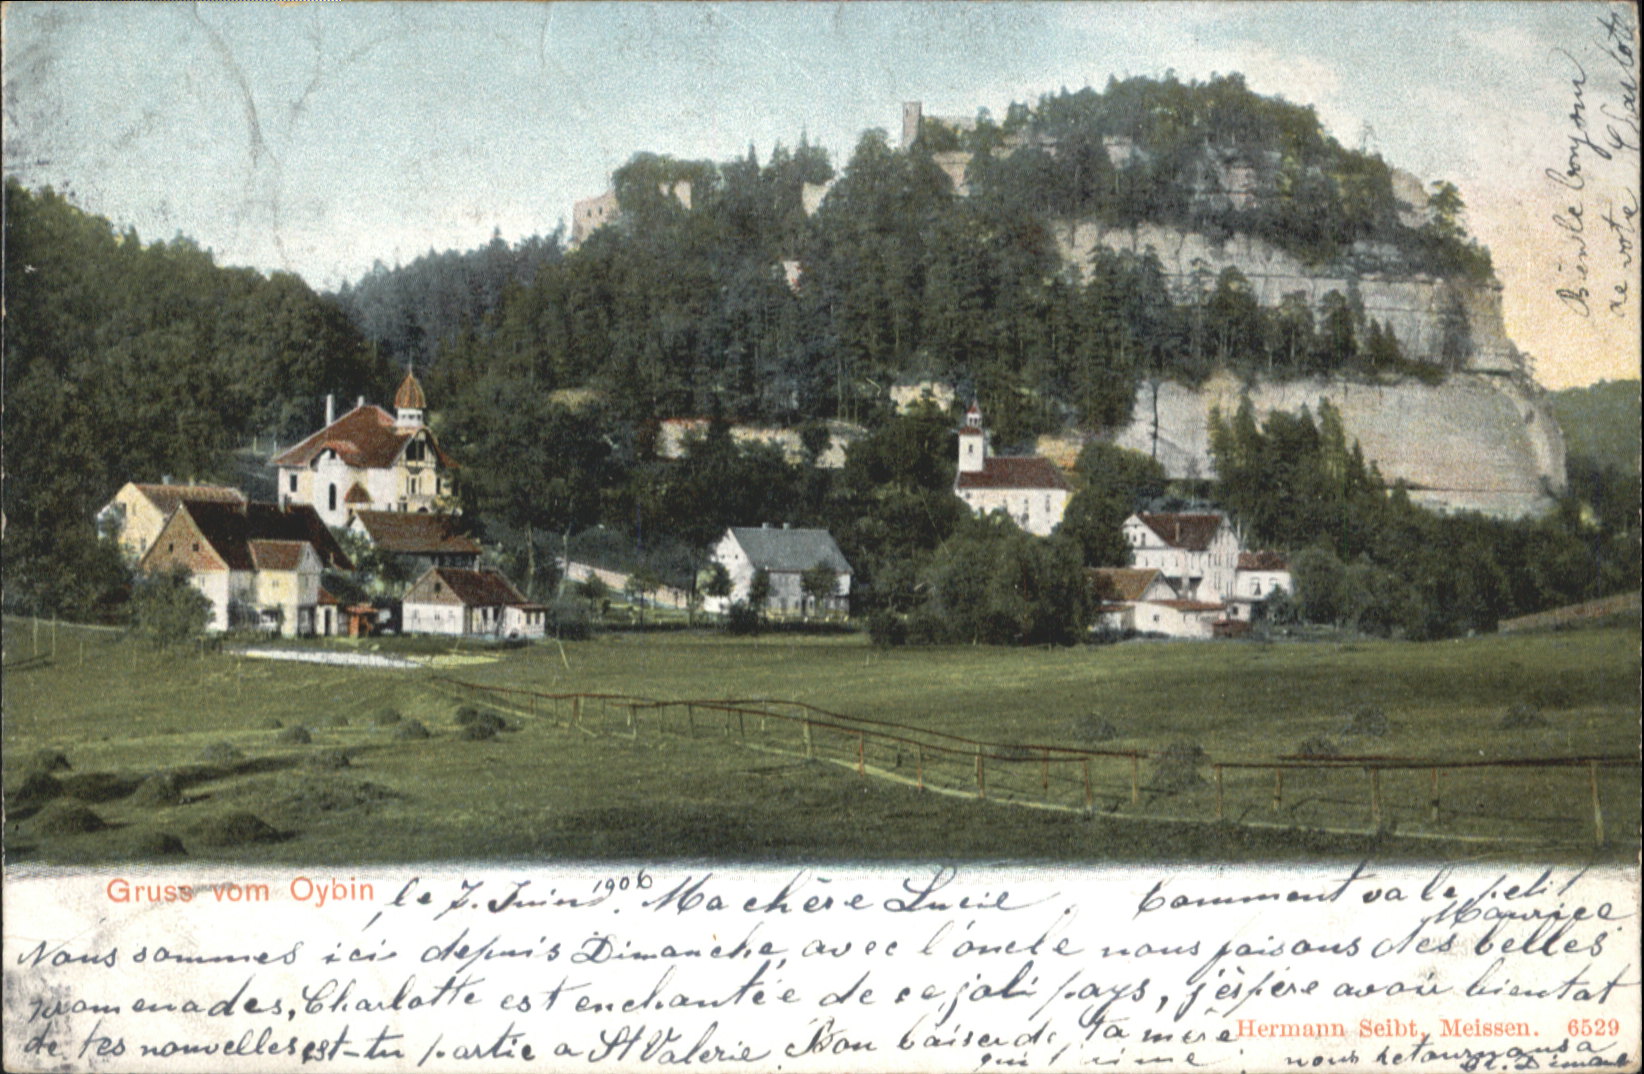 Bien le bonjour
de vote Charlotte
Gruss vom Oybin
le 7. Juin 1906. Ma chère Lucie. Comment va le petit
Maurice
Nous sommes ici depuis Dimanche, avec l'oncle nous faisons des belles
promenades, Charlotte est enchantée de ce joli pays, j'éspère avoir bientat
de tes nouvelles est-tu partie a St Valerie. Bon baiser de Ta mère
qui t'aime. nous retournons a
Dimanch
Hermann Seibt, Meissen. 6529